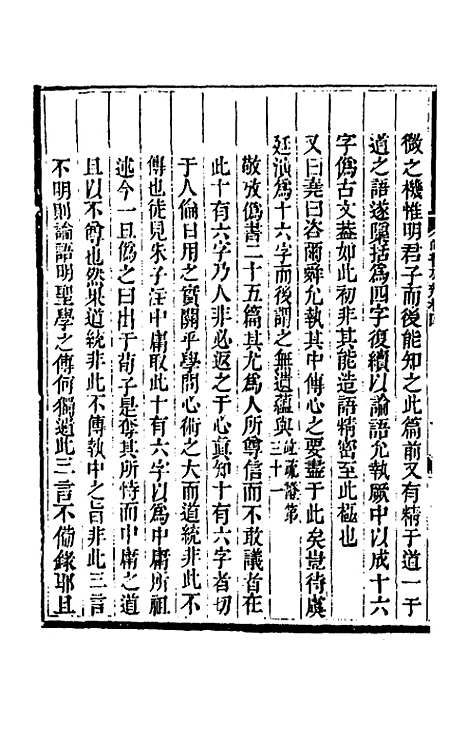 微之機惟明君子而後能知之此篇前又有精于道一于
道之語遂櫽括爲四字復續以論語允執厥中以成十六
字僞古文蓋如此初非其能造語精密至此極也
又曰堯曰咨爾舜允執其中傳心之要盡于此矣豈待虞
廷演爲十六字而後謂之無遺蘊與疏證第三十一
敬攷僞書二十五篇其尤爲人所尊信而不敢議者在
此十有六字乃人非必返之于心眞知十有六字者切
于人倫日用之實關乎學問心術之大而道統非此不
傳也徒見朱子注中庸取此十有六字以爲中庸所祖
述今一旦僞之曰出于荀子是奪其所恃而中庸之道
且以不尊也然果道統非此不傳執中之旨非此三言
不明則論語明聖學之傳何獨遺此三言不備錄耶且